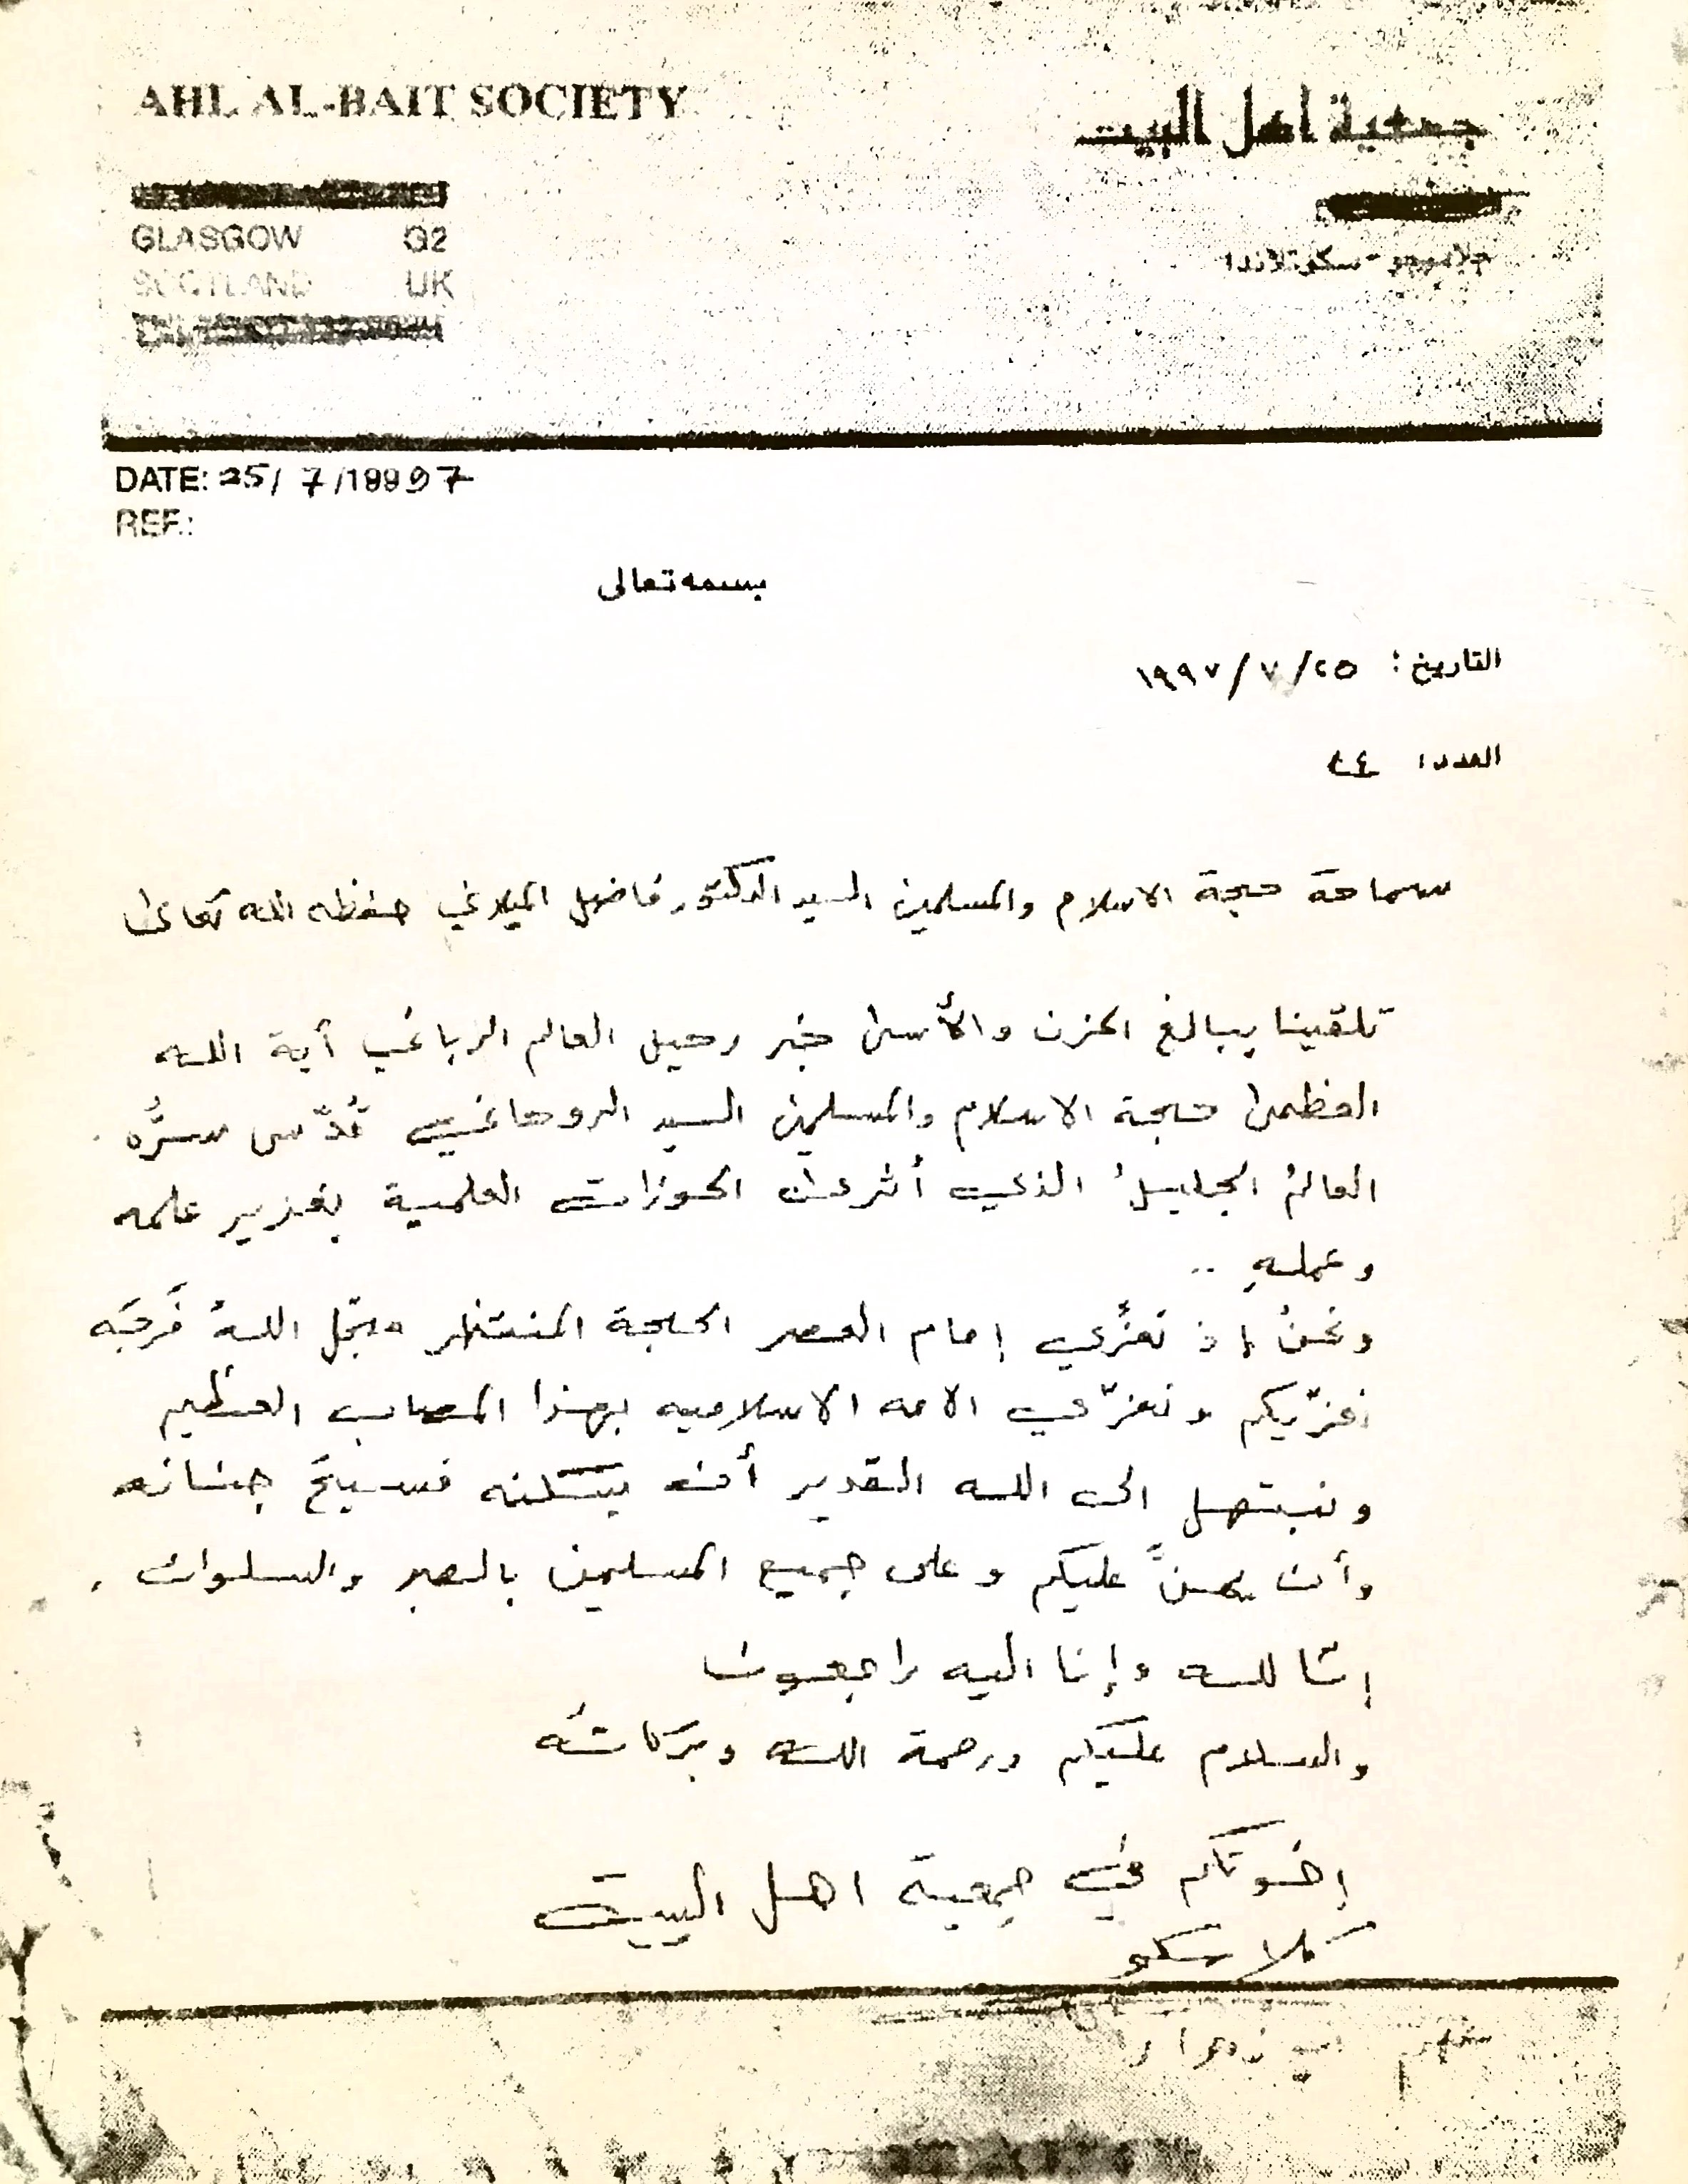 AHL AL-BAIT SOCIETY
جمعية اهل البيت
GLASGOW G2
SCOTLAND UK
جلاسجو - سكوتلاندا
DATE: 25/ 7 /19997
REF.:
بسمه تعالى
التاريخ: ٢٥/ ٧ /١٩٩٧
العدد: ٤٤
سماحة حجة الاسلام والمسلمين السيد الدكتور فاضل الميلاني حفظه الله تعالى
تلقينا ببالغ الحزن والأسى خبر رحيل العالم الرباني آية الله
العظمى حجة الاسلام والمسلمين السيد الروحاني قُدّس سرُّه .
العالمُ الجليلُ الذي أثرى الحوزات العلمية بغزير علمه
وعملهِ ..
ونحنُ إذ نعزّي إمام العصر الحجة المنتظر عجّل اللهُ فَرجَه
نعزّيكم ونعزّي الامه الاسلاميه بهذا المصاب العظيم
ونبتهل الى الله القدير أن يسكنه فسيحَ جنانه
وأن يمنَّ عليكم وعلى جميع المسلمين بالصبر والسلوان .
إنّا لله وإنا اليه راجعون
والسلام عليكم ورحمة الله وبركاتُه
إخوتكم في جمعية اهل البيت
كلاسكو